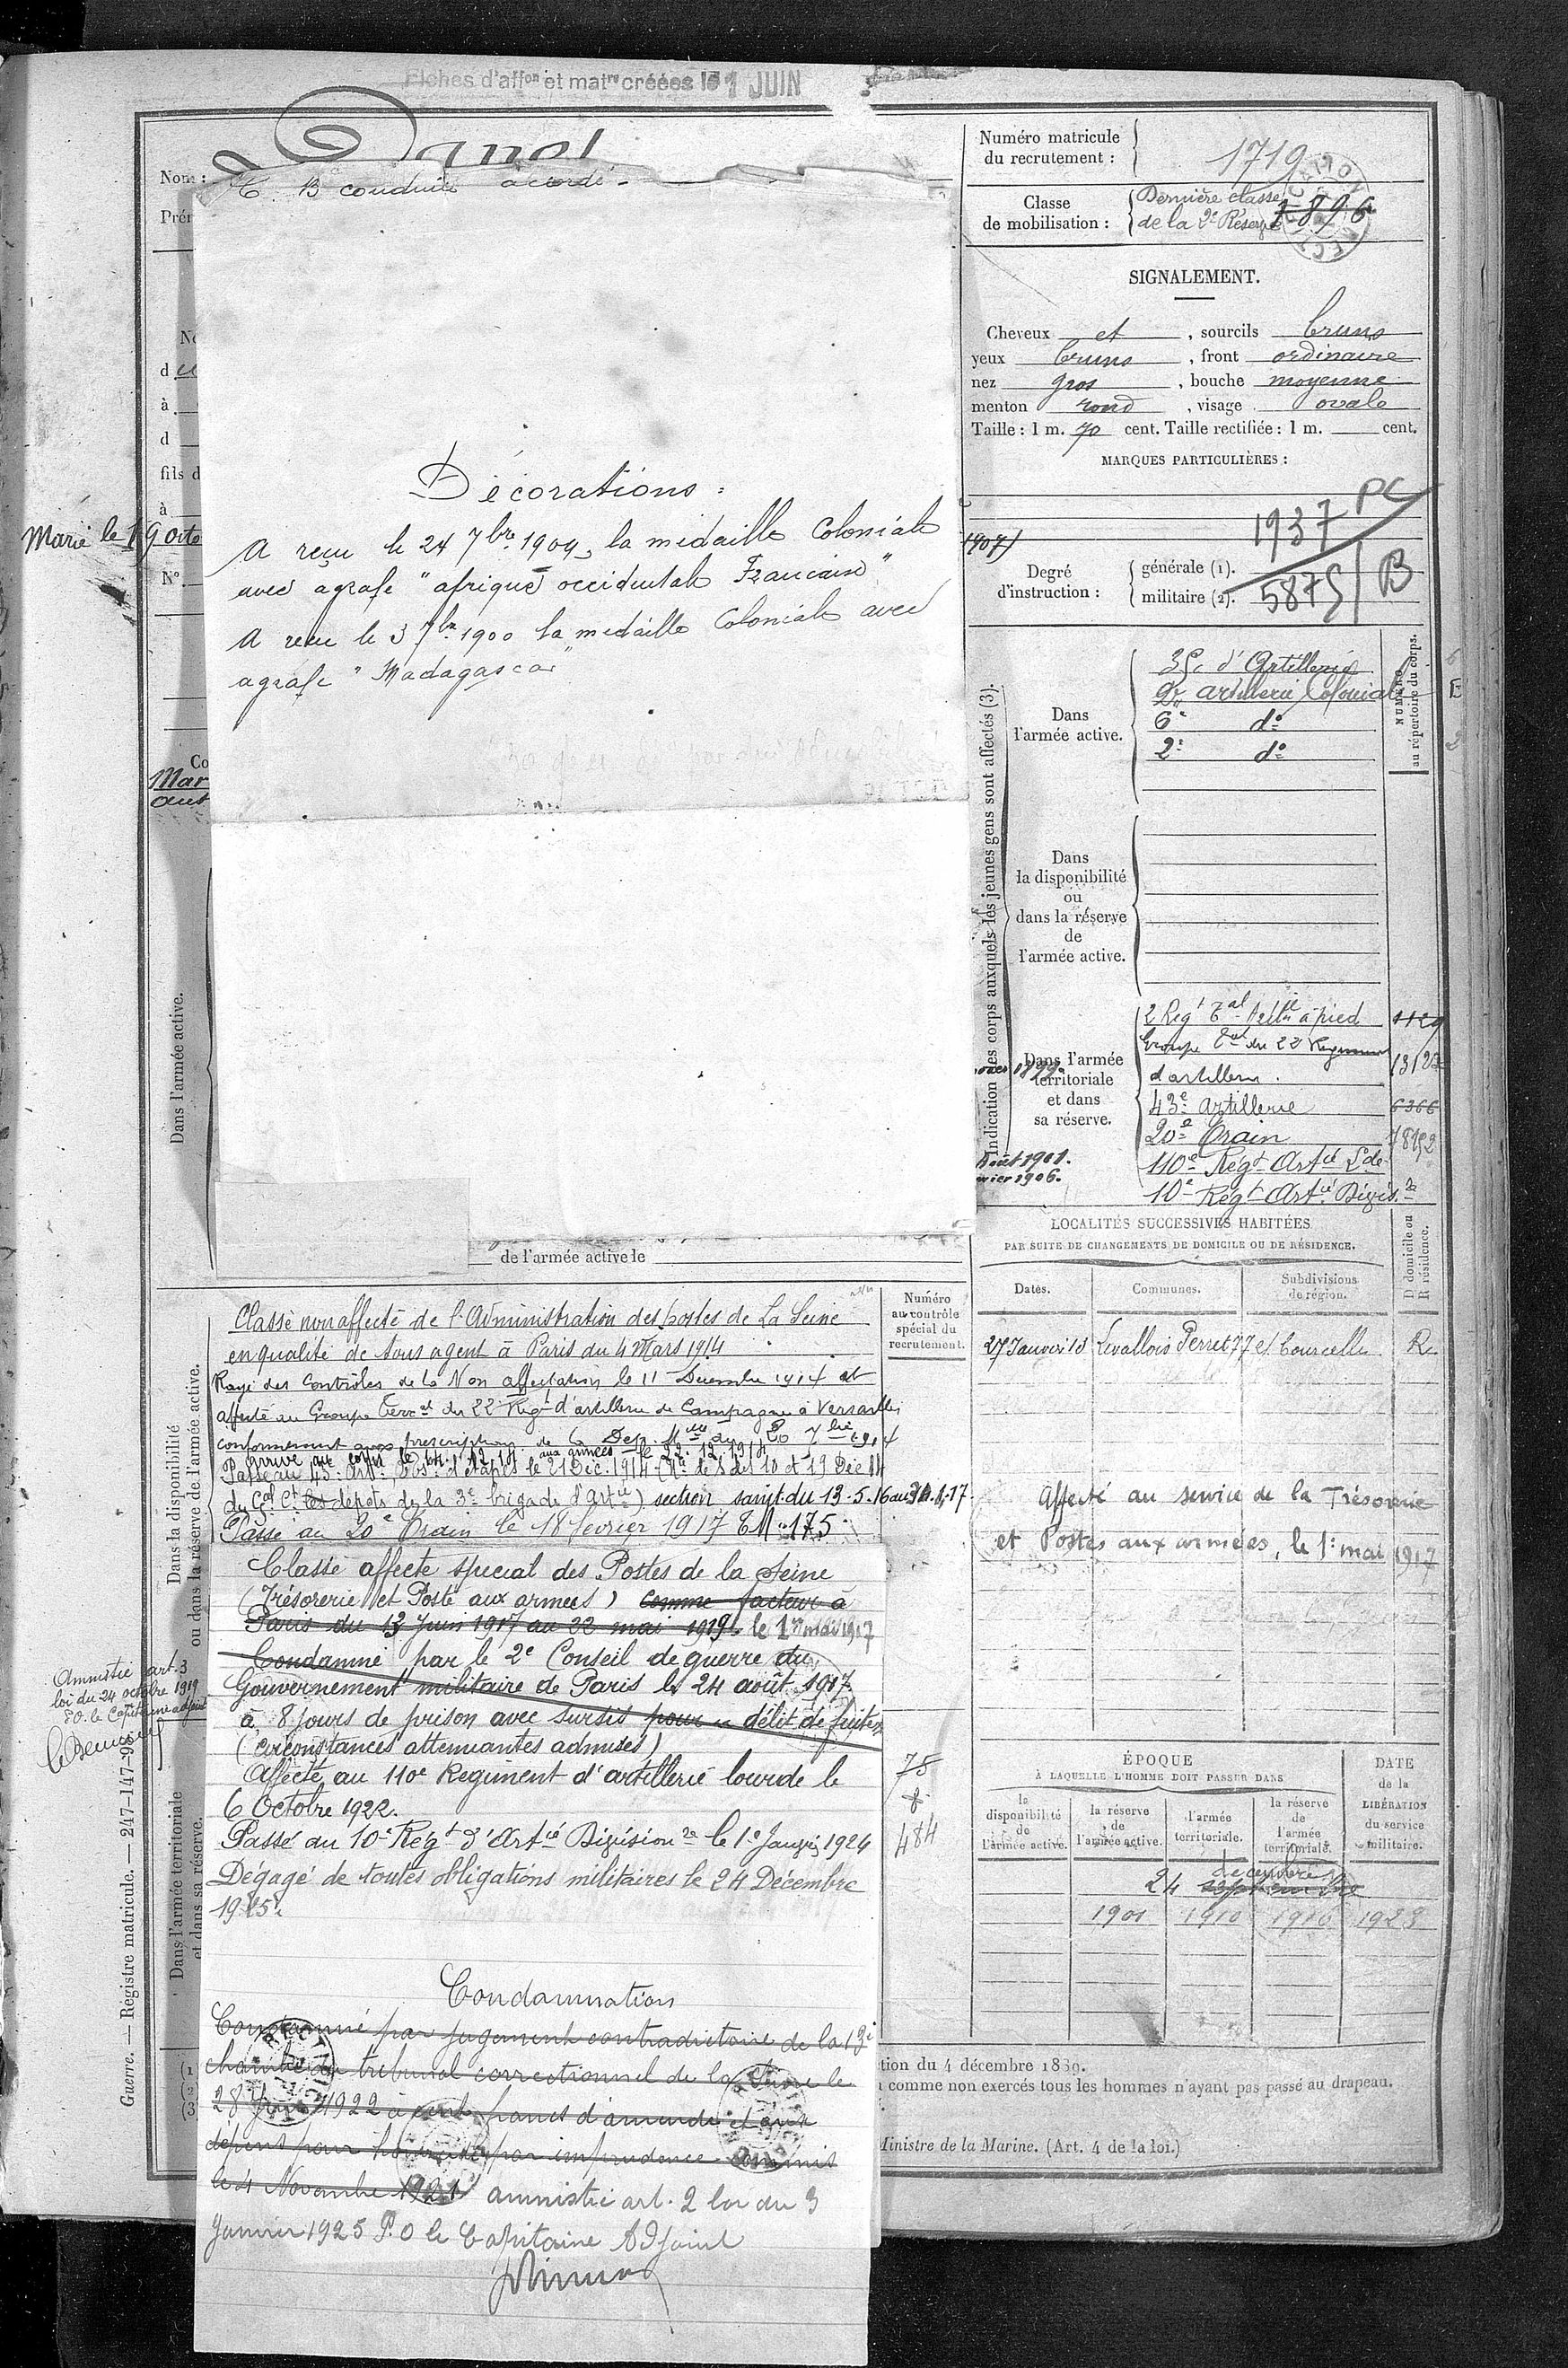 Fiches d'aff<sup>on</sup> et mat<sup>re</sup> créées le 1 JUIN
Nom :
C. B<sup>e</sup> conduite accordé
Prén
d
à
d
fils d
à
Marié le 19 octo
N°.
Co
Mar
aut
Décorations :
A reçu le 24 7bre 1904, la médaille Coloniale
avec agrafe "afrique occidentale Francaise"
A reçu le 3 7bre 1900 la médaille Coloniale avec
agrafe "Madagascar"
Dans l'armée active.
de l'armée active le
Numéro matricule
du recrutement :
1719
Classe
de mobilisation :
Dernière classe
de la 2e Réserve
1896
SIGNALEMENT.
Cheveux et , sourcils bruns
yeux bruns , front ordinaire
nez gros , bouche moyenne
menton rond , visage ovale
Taille : 1 m. 70 cent. Taille rectifiée : 1 m. cent.
MARQUES PARTICULIÈRES :
1907)
1937 PC
5875 / B
Degré
d'instruction :
générale (1).
militaire (2).
Indication des corps auxquels les jeunes gens sont affectés (3).
NUMÉRO
au répertoire du corps.
Dans
l'armée active.
35e d'Artillerie
2e artillerie Coloniale
6e do
2e do
Dans
la disponibilité
ou
dans la réserve
de
l'armée active.
Dans l'armée
territoriale
et dans
sa réserve.
1899.
2 Régt Tal Artie à pied
Groupe Tal du 22 Régiment
d'artillerie.
43e artillerie 6366
20e Train
110e Régt Artie Lde
10e Régt Artie Divis.re
Août 1901.
vier 1906.
LOCALITÉS SUCCESSIVES HABITÉES
PAR SUITE DE CHANGEMENTS DE DOMICILE OU DE RÉSIDENCE.
D domicile ou
R résidence.
Dates.
Communes.
Subdivisions
de région.
27 Janvier 13 Levallois Perret 77 r. Courcelles R.
Affecté au service de la Trésorerie
et Postes aux armées, le 1er mai 1917
Dans la disponibilité
ou dans la réserve de l'armée active.
Numéro
au contrôle
spécial du
recrutement.
Classé non affecté de l'Administration des postes de La Seine
en qualité de sous agent à Paris du 4 Mars 1914
Rayé des Contrôles de la Non affectation le 11 Décembre 1914 et
affecté au Groupe Terral du 22e Régt d'artillerie de Campagne à Versailles
conformément aux prescriptions de la Dép. Mlle du 20 7bre 1914
Arrivé au corps le 14.12.14 aux armées le 22.12.1914
Passé au 43e Artie (Pos.on d'étapes le 21 Déc. 1914 (No des 10 et 19 Déc 14
du Gal Ct les dépôts de la 3e brigade d'Artie) section sanit. du 13.5.16 au 31.1.17
Passé au 20e Train le 18 février 1917 EM 175
Classé affecté spécial des Postes de la Seine
(Trésorerie et Poste aux armées) comme facteur à
Paris du 13 Juin 1917 au 22 mai 1919. le 1er mai 1917
Condamné par le 2e Conseil de guerre du
Gouvernement militaire de Paris le 24 août 1917
à 8 jours de prison avec sursis pour délit de fuite
(circonstances atténuantes admises)
Amnistié art. 3
loi du 24 octobre 1919
P.O. le Capitaine adjoint
Affecté au 110e Régiment d'artillerie lourde le
6 Octobre 1922.
Passé au 10e Régt d'Artie Divisionre le 1er Janvier 1924
Dégagé de toutes obligations militaires le 24 Décembre
1925.
75
484
Dans l'armée territoriale
et dans sa réserve.
Condamnation
Condamné par jugement contradictoire de la 13e
chambre du tribunal correctionnel de la Seine le
28 1922 à cent francs d'amende et aux
dépens pour par imprudence commis
le 4 Novembre 1921 amnistié art. 2 loi du 3
janvier 1925 P.O le Capitaine Adjoint
ÉPOQUE
À LAQUELLE L'HOMME DOIT PASSER DANS
DATE
de la
LIBÉRATION
du service
militaire.
la
disponibilité
de
l'armée active.
la réserve
de
l'armée active.
l'armée
territoriale.
la réserve
de
l'armée
territoriale.
décembre
24 septembre
1901 1910 1916 1923
Guerre. — Registre matricule. — 247-147-96
(1
(2
(3)
tion du 4 décembre 1889.
comme non exercés tous les hommes n'ayant pas passé au drapeau.
Ministre de la Marine. (Art. 4 de la loi.)